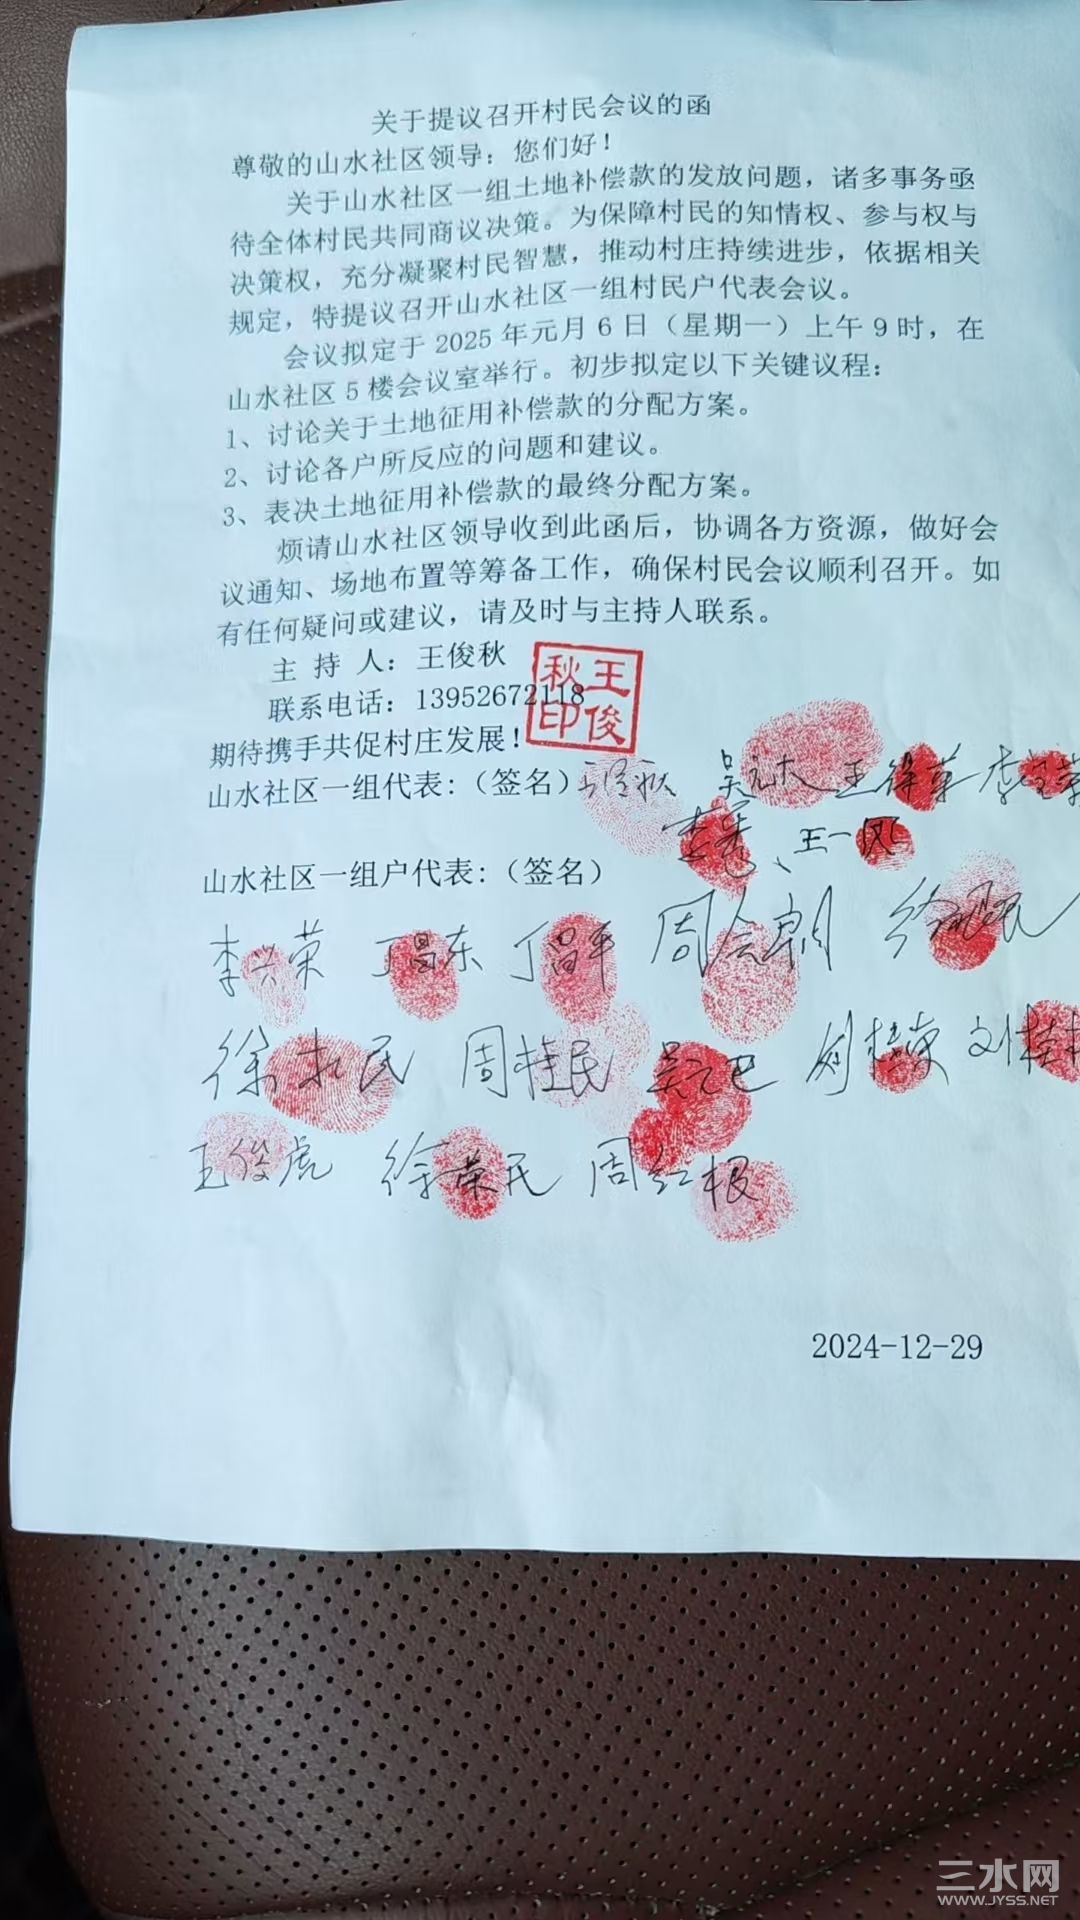 关于提议召开村民会议的函
尊敬的山水社区领导：您们好！
关于山水社区一组土地补偿款的发放问题，诸多事务亟
待全体村民共同商议决策。为保障村民的知情权、参与权与
决策权，充分凝聚村民智慧，推动村庄持续进步，依据相关
规定，特提议召开山水社区一组村民户代表会议。
会议拟定于 2025 年元月 6 日（星期一）上午 9 时，在
山水社区 5 楼会议室举行。初步拟定以下关键议程：
1、讨论关于土地征用补偿款的分配方案。
2、讨论各户所反应的问题和建议。
3、表决土地征用补偿款的最终分配方案。
烦请山水社区领导收到此函后，协调各方资源，做好会
议通知、场地布置等筹备工作，确保村民会议顺利召开。如
有任何疑问或建议，请及时与主持人联系。
主 持 人：王俊秋
联系电话：13952672118
王俊秋印
期待携手共促村庄发展！
山水社区一组代表：（签名）王俊秋 吴元大
王一凤
山水社区一组户代表：（签名）
李兴荣 丁昌东 丁昌平 周会朗
周桂民
王俊虎 徐荣民 周红根
2024-12-29
三水网
WWW.JYSS.NET